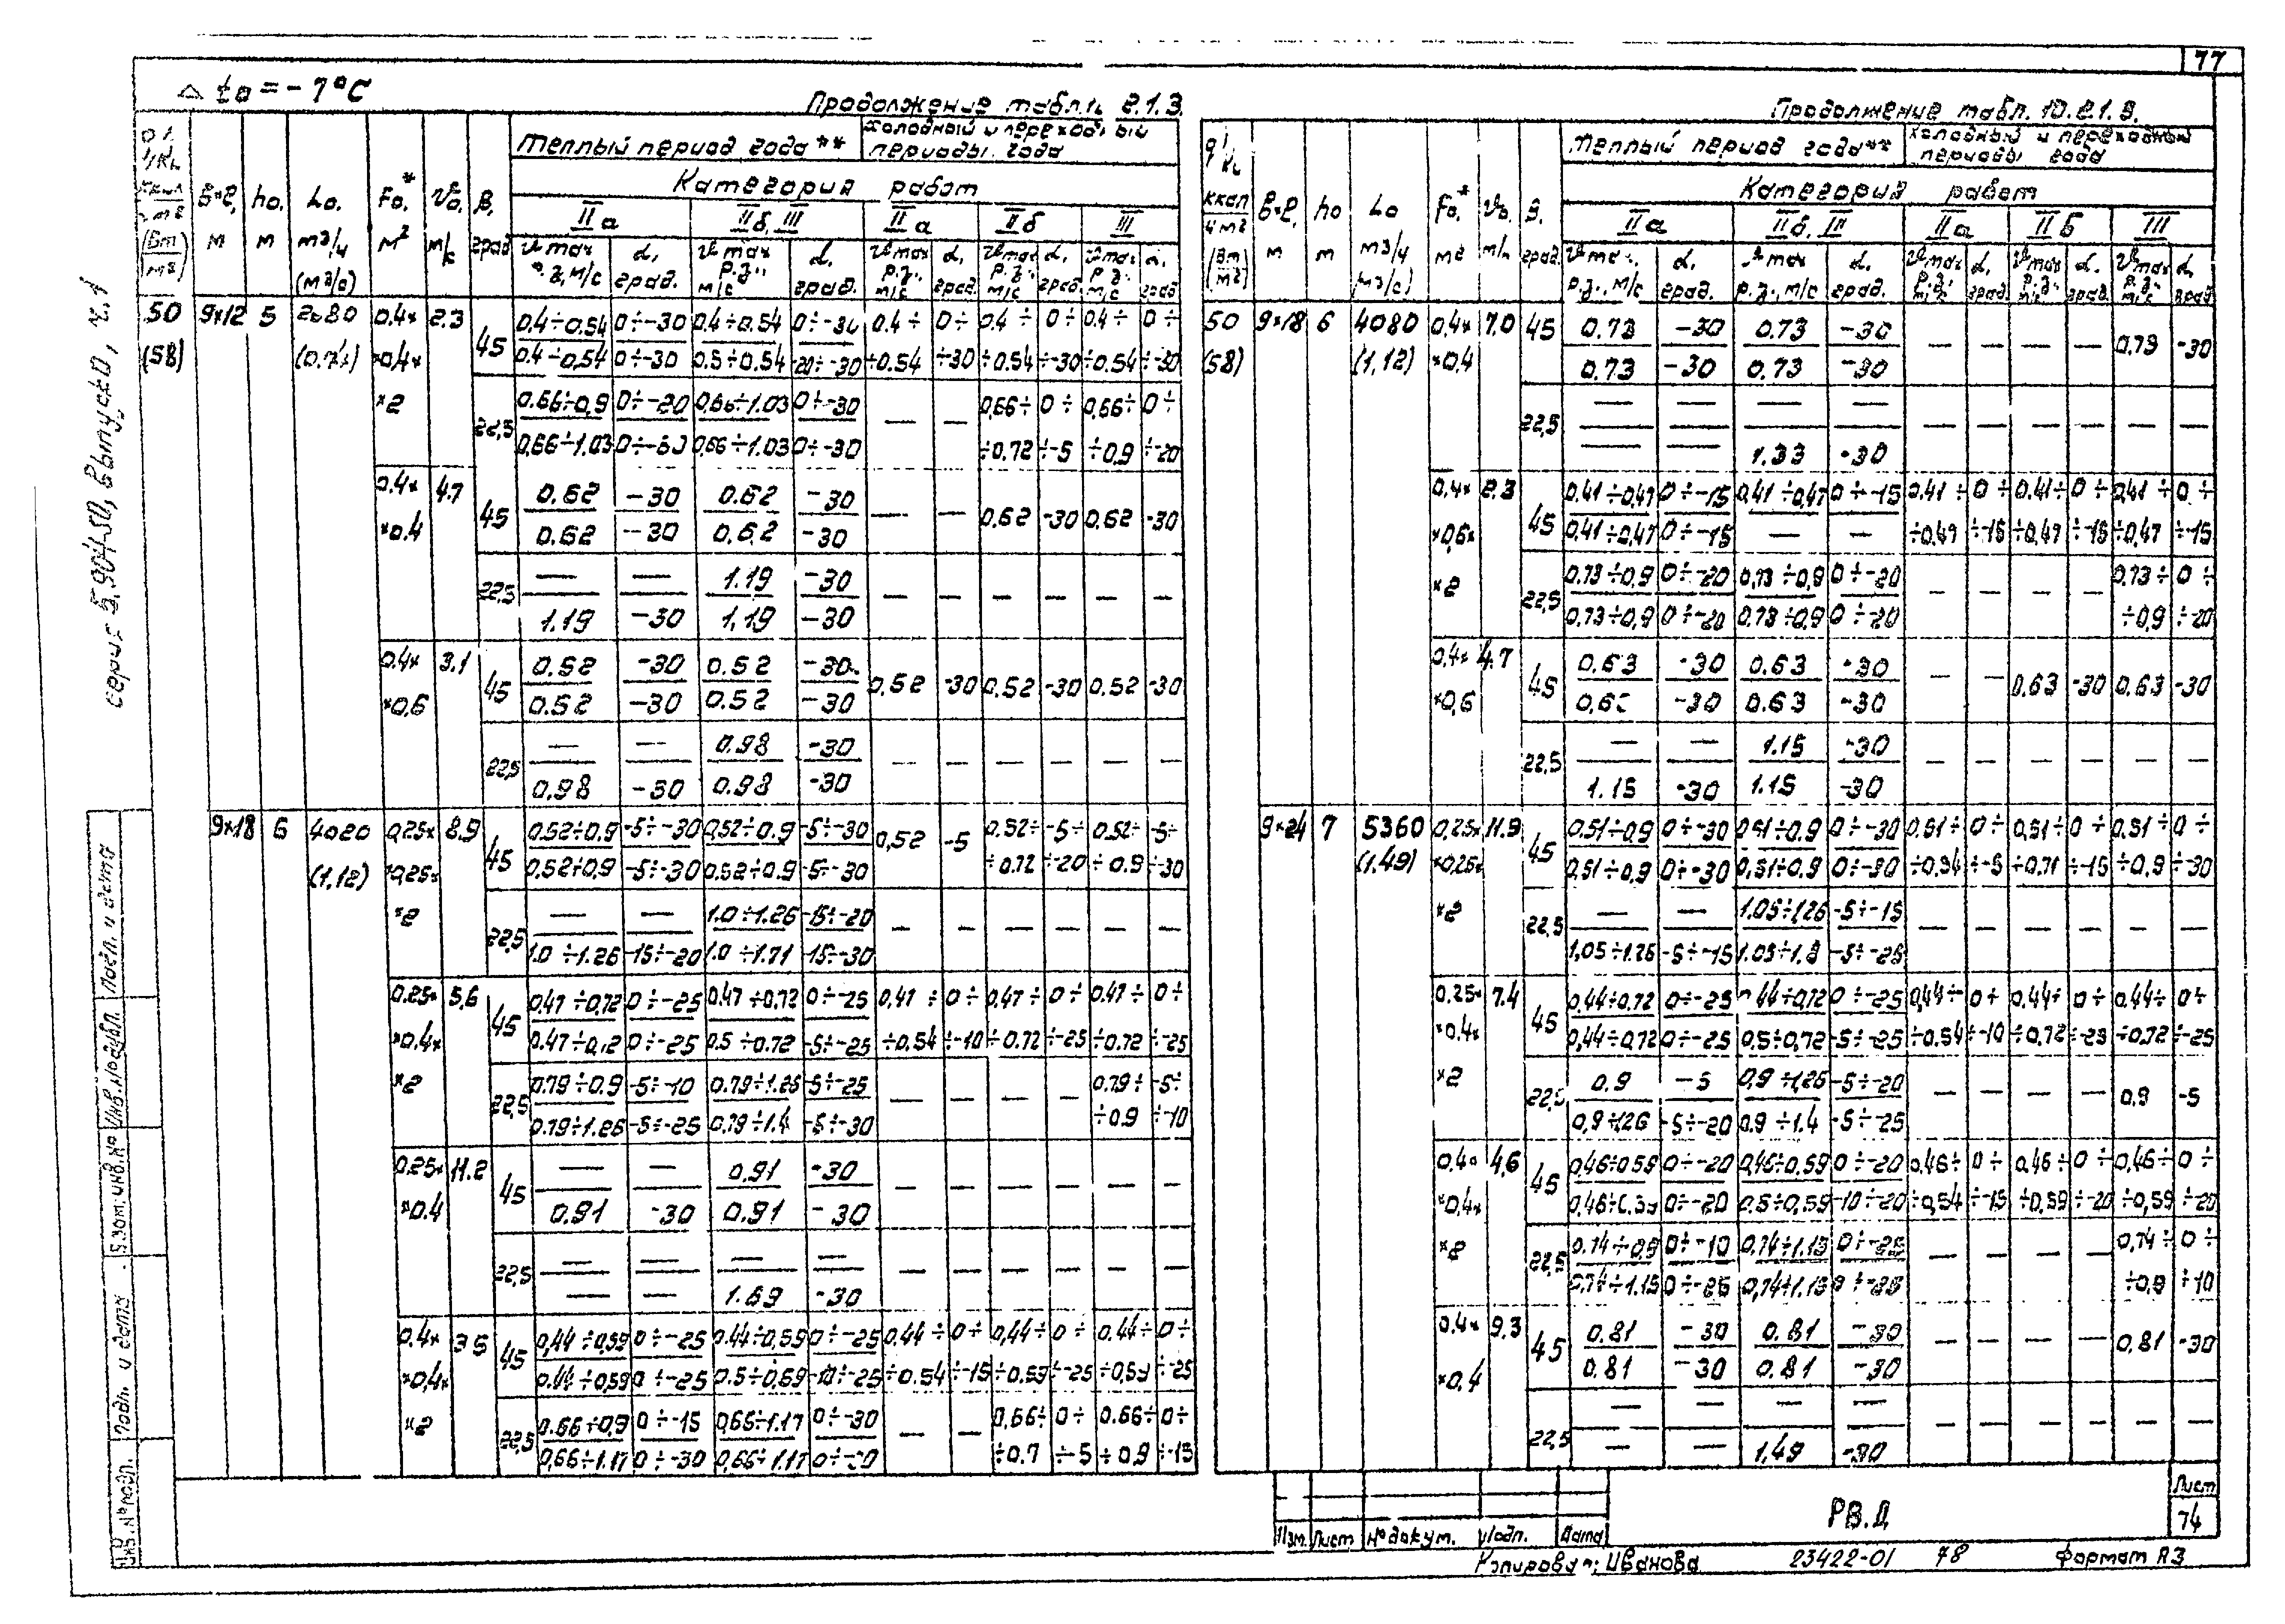 77
Δ to = -7°C
Продолжение табл. 2.1.3.
теплый период года**
холодный и переходный периоды года
Категория работ
ккал
(Вт/м²)
h₀, м
L₀, м³/ч (м³/с)
F₀*, м²
v₀, м/с
β, град
IIа
IIб, III
IIа
IIб
III
v max р.з., м/с
α, град.
50 (58) 9×12 5 (0.74) 0.4× ×0.4× ×2 2.3
45 0.4÷0.54 0÷-30 0.4÷0.54 0÷-30 0.4÷ 0÷ 0.4÷ 0÷ 0.4÷ 0÷
0.4÷0.54 0÷-30 0.5÷0.54 -20÷-30 ÷0.54 ÷-30 ÷0.54 ÷-30 ÷0.54 ÷-30
22,5 0.66÷0.9 0÷-20 0.66÷1.03 0÷-30 — — 0,66÷ 0÷ 0,66÷ 0÷
0,66÷1.03 0,66÷1.03 0÷-30 ÷0.72 ÷-5 ÷0.9 ÷-20
0.4× ×0.4 4.7
45 0.62 -30 0.62 -30 — — 0,62 -30 0,62 -30
0.62 -30 0.62 -30
22,5 — — 1.19 -30 — — — — — —
1.19 -30 1.19 -30
0.4× ×0,6 3.1
45 0.52 -30 0.52 -30 0,52 -30 0,52 -30 0.52 -30
0.52 -30 0.52 -30
22,5 — — 0.98 -30 — — — — — —
0.98 -30 0.98 -30
9×18 6 4020 (1,12) 0,25× ×0,25× ×2 8.9
45 0.52÷0.9 -5÷-30 0,52÷0.9 -5÷-30 0,52 -5 0,52÷ -5÷ 0.52÷ -5÷
0.52÷0,9 -5÷-30 0.52÷0.9 -5÷-30 ÷0.72 ÷-20 ÷0.9 ÷-30
22,5 — — 1.0÷1.26 -15÷-20 — — — — — —
1.0÷1.26 -15÷-20 1.0÷1.71 -15÷-30
0.25× ×0.4× ×2 5,6
45 0.47÷0,72 0÷-25 0.47÷0.72 0÷-25 0,47÷ 0÷ 0,47÷ 0÷ 0.47÷ 0÷
0.47÷ 0÷-25 0.5÷0.72 -5÷-25 ÷0.54 ÷-10 ÷0.72 ÷-25 ÷0.72 ÷-25
22,5 0.79÷0.9 -5÷-10 0.79÷1.26 -5÷-25 — — — — 0.79÷ -5÷
0.79÷1.26 -5÷-25 0.79÷1.4 -5÷-30 ÷0.9 ÷-10
0.25× ×0.4 11.2
45 — — 0.91 -30 — — — — — —
0.91 -30 0.91 -30
22,5 — — — — — — — — — —
— — 1.69 -30
0.4× ×0,4× ×2
45 0,44÷0,59 0÷-25 0.44÷0,59 0÷-25 0,44÷ 0÷ 0,44÷ 0÷ 0.44÷ 0÷
0.44÷0,59 0÷-25 -10÷-25 ÷0.54 ÷-15 ÷0.59 ÷-25 ÷0,59 ÷-25
22,5 0.66÷0,9 0÷-15 0,66÷1.17 0÷-30 — — 0,66÷ 0÷ 0.66÷ 0÷
0,66÷1.17 0÷-30 0,66÷1.17 ÷0.7 ÷-5 ÷0,9 ÷-15
Продолжение табл. 10.2.1.3.
теплый период года**
холодный и переходный периоды года
Категория работ
ккал
h₀ м
L₀ м³/ч (м³/с)
F₀* м²
v₀,
β, град.
IIа
IIб, III
IIа
IIб
III
v max р.з., м/с
α, град.
50 (58) 9×18 6 4080 (1,12) 0,4× ×0,4 7.0
45 0.73 -30 0.73 -30 — — — — 0,73 -30
0.73 -30 0.73 -30
22,5 — — — — — — — — — —
— — 1.33 -30
0.4× ×0,6× ×2 2.3
45 0,41÷0,47 0÷-15 0,41÷0,47 0÷-15 0,41÷ 0÷ 0,41÷ 0÷ 0,41÷ 0÷
0.41÷0,47 0÷-15 — — ÷0,47 ÷-15 ÷0,47 ÷-15 ÷0,47 ÷-15
22,5 0.73÷0,9 0÷-20 0,73÷0,9 0÷-20 — — — — 0,73÷ 0÷
0.73÷0,9 0÷-20 0.73÷0.9 0÷-20 ÷0,9 ÷-20
0,4× ×0,6 4.7
45 0.63 -30 0.63 -30 — — 0,63 -30 0,63 -30
-30 0.63 -30
22,5 — — 1.15 -30 — — — — — —
1.15 -30 1.15 -30
9×24 7 5360 (1.49) 0,25× ×0,25× ×2 11.9
45 0.51÷0.9 0÷-30 0,51÷0.9 0÷-30 0,51÷ 0÷ 0,51÷ 0÷ 0,51÷ 0÷
0,51÷0,9 0÷-30 0,51÷0.9 0÷-30 ÷0,54 ÷-5 ÷0,71 ÷-15 ÷0,9 ÷-30
22,5 — — 1.05÷1,26 -5÷-15 — — — — — —
1,05÷1.26 -5÷-15 1.05÷1,8 -5÷-25
0.25× ×0.4× ×2 7.4
45 0.44÷0.72 0÷-25 0÷-25 0,44÷ 0÷ 0.44÷ 0÷ 0.44÷ 0÷
0,44÷0,72 0÷-25 0,5÷0,72 -5÷-25 ÷0.54 ÷-10 ÷0,72 ÷-25 ÷0,72 ÷-25
22,5 0.9 -5 0,9÷1,26 -5÷-20 — — — — 0,9 -5
0,9÷1,26 -5÷-20 0.9÷1.4 -5÷-25
0,4× ×0,4× ×2 4,6
45 0,46÷0,59 0÷-20 0,46÷0,59 0÷-20 0,46÷ 0÷ 0,46÷ 0÷ 0,46÷ 0÷
0÷-20 0.5÷0,59 -10÷-20 ÷0,54 ÷-15 ÷0,59 ÷-20 ÷0,59 ÷-20
22,5 0.74÷0,9 0÷-10 0,74÷1.15 0÷-25 — — — — 0,74÷ 0÷
0,74÷1.15 0÷-25 0,74÷1.15 ÷0,9 ÷-10
0.4× ×0,4 9.3
45 0.81 -30 0.81 -30 — — — — 0,81 -30
0.81 -30 0.81 -30
22,5 — — — — — — — — — —
— — 1,49 -30
серия 5.904-50, выпуск 0, ч.1
Инв. № подл.
Подп. и дата
Взам. инв. №
Инв. № дубл.
Подп. и дата
Изм. Лист № докум. Подп. Дата
РВ.Д
Лист
74
Копировал: Иванова
23422-01 78
Формат А3